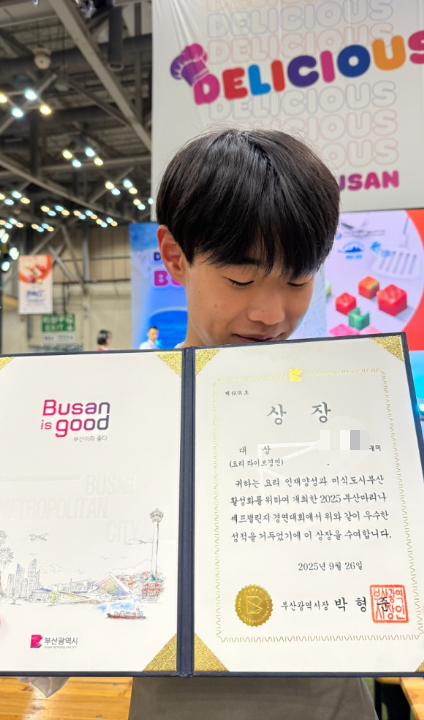 DELICIOUS
BUSAN
Busan
is good
부산이라 좋다
부산광역시
상 장
대 상
(요리 라이브경연)
귀하는 요리 인재양성과 미식도시부산
활성화를 위하여 개최한 2025 부산마리나
셰프챌린지 경연대회에서 위와 같이 우수한
성적을 거두었기에 이 상장을 수여합니다.
2025년 9월 26일
부산광역시장 박 형 준